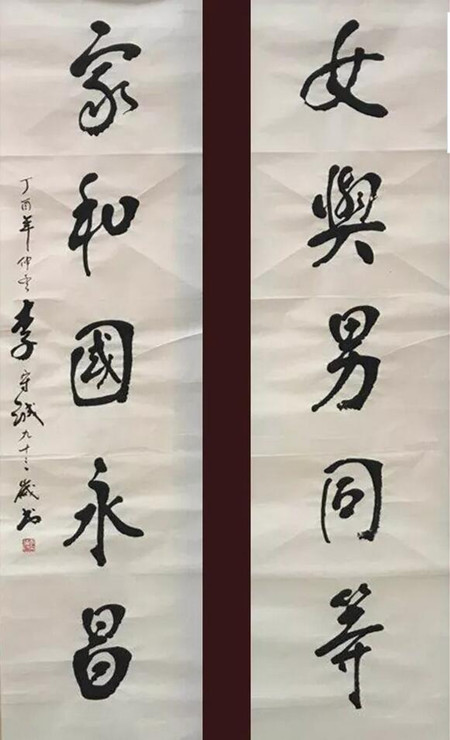 女與男同等
家和國永昌
丁酉年仲冬李守誠九十二歲書